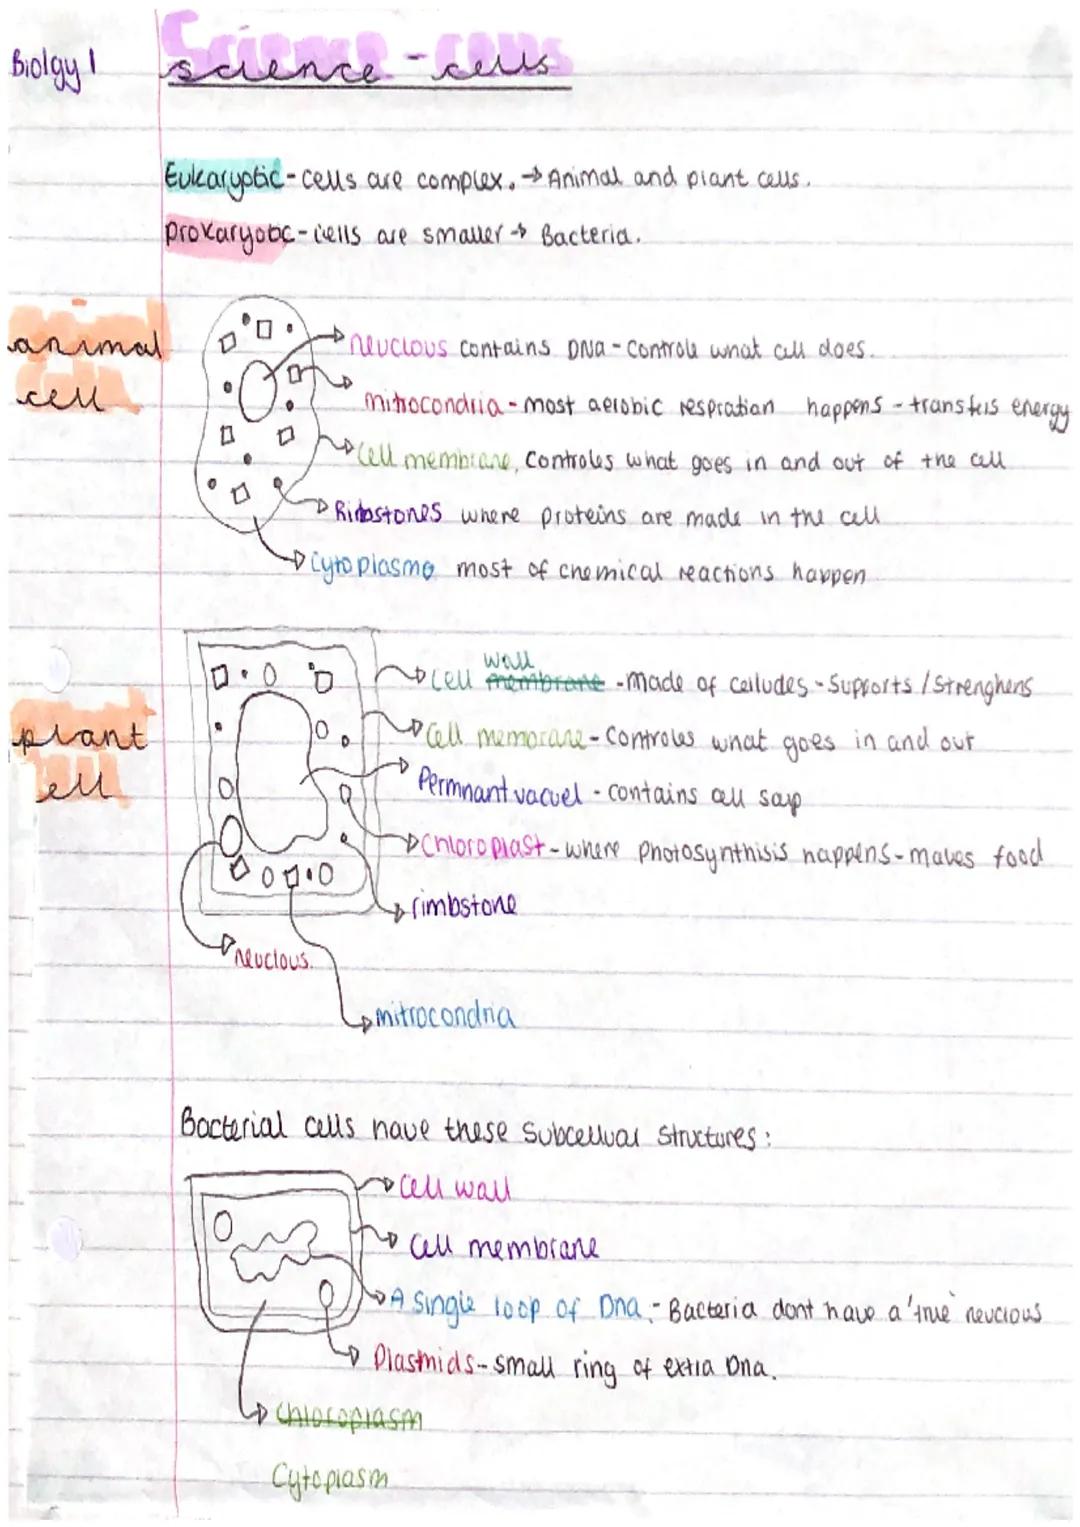 Biolgy 1
Science - cells
science - cells
Eukaryotic - cells are complex. → Animal and plant cells.
prokaryotic - cells are smaller → Bacteria.
animal
cell
neuclous contains DNA - controle what cell does.
mitrocondria - most aerobic respration happens - transfers energy
Cell membrane, controles what goes in and out of the cell
Ribostones where proteins are made in the cell
Cytoplasme most of chemical reactions happen
wall
Cell membrane - made of celludes - supports / Strenghens
plant
cell
Cell membrane - controles what goes in and out
Permnant vacuel - contains cell sap
Chloroplast - where photosynthisis happens - makes food
rimbstone
neuclous.
mitrocondria
Bacterial cells have these subcelluar structures:
Cell wall
Cell membrane
A single loop of Dna; - Bacteria dont have a 'true' neuclous
Plasmids - small ring of extra Dna.
Chloroplasm
Cytoplasm